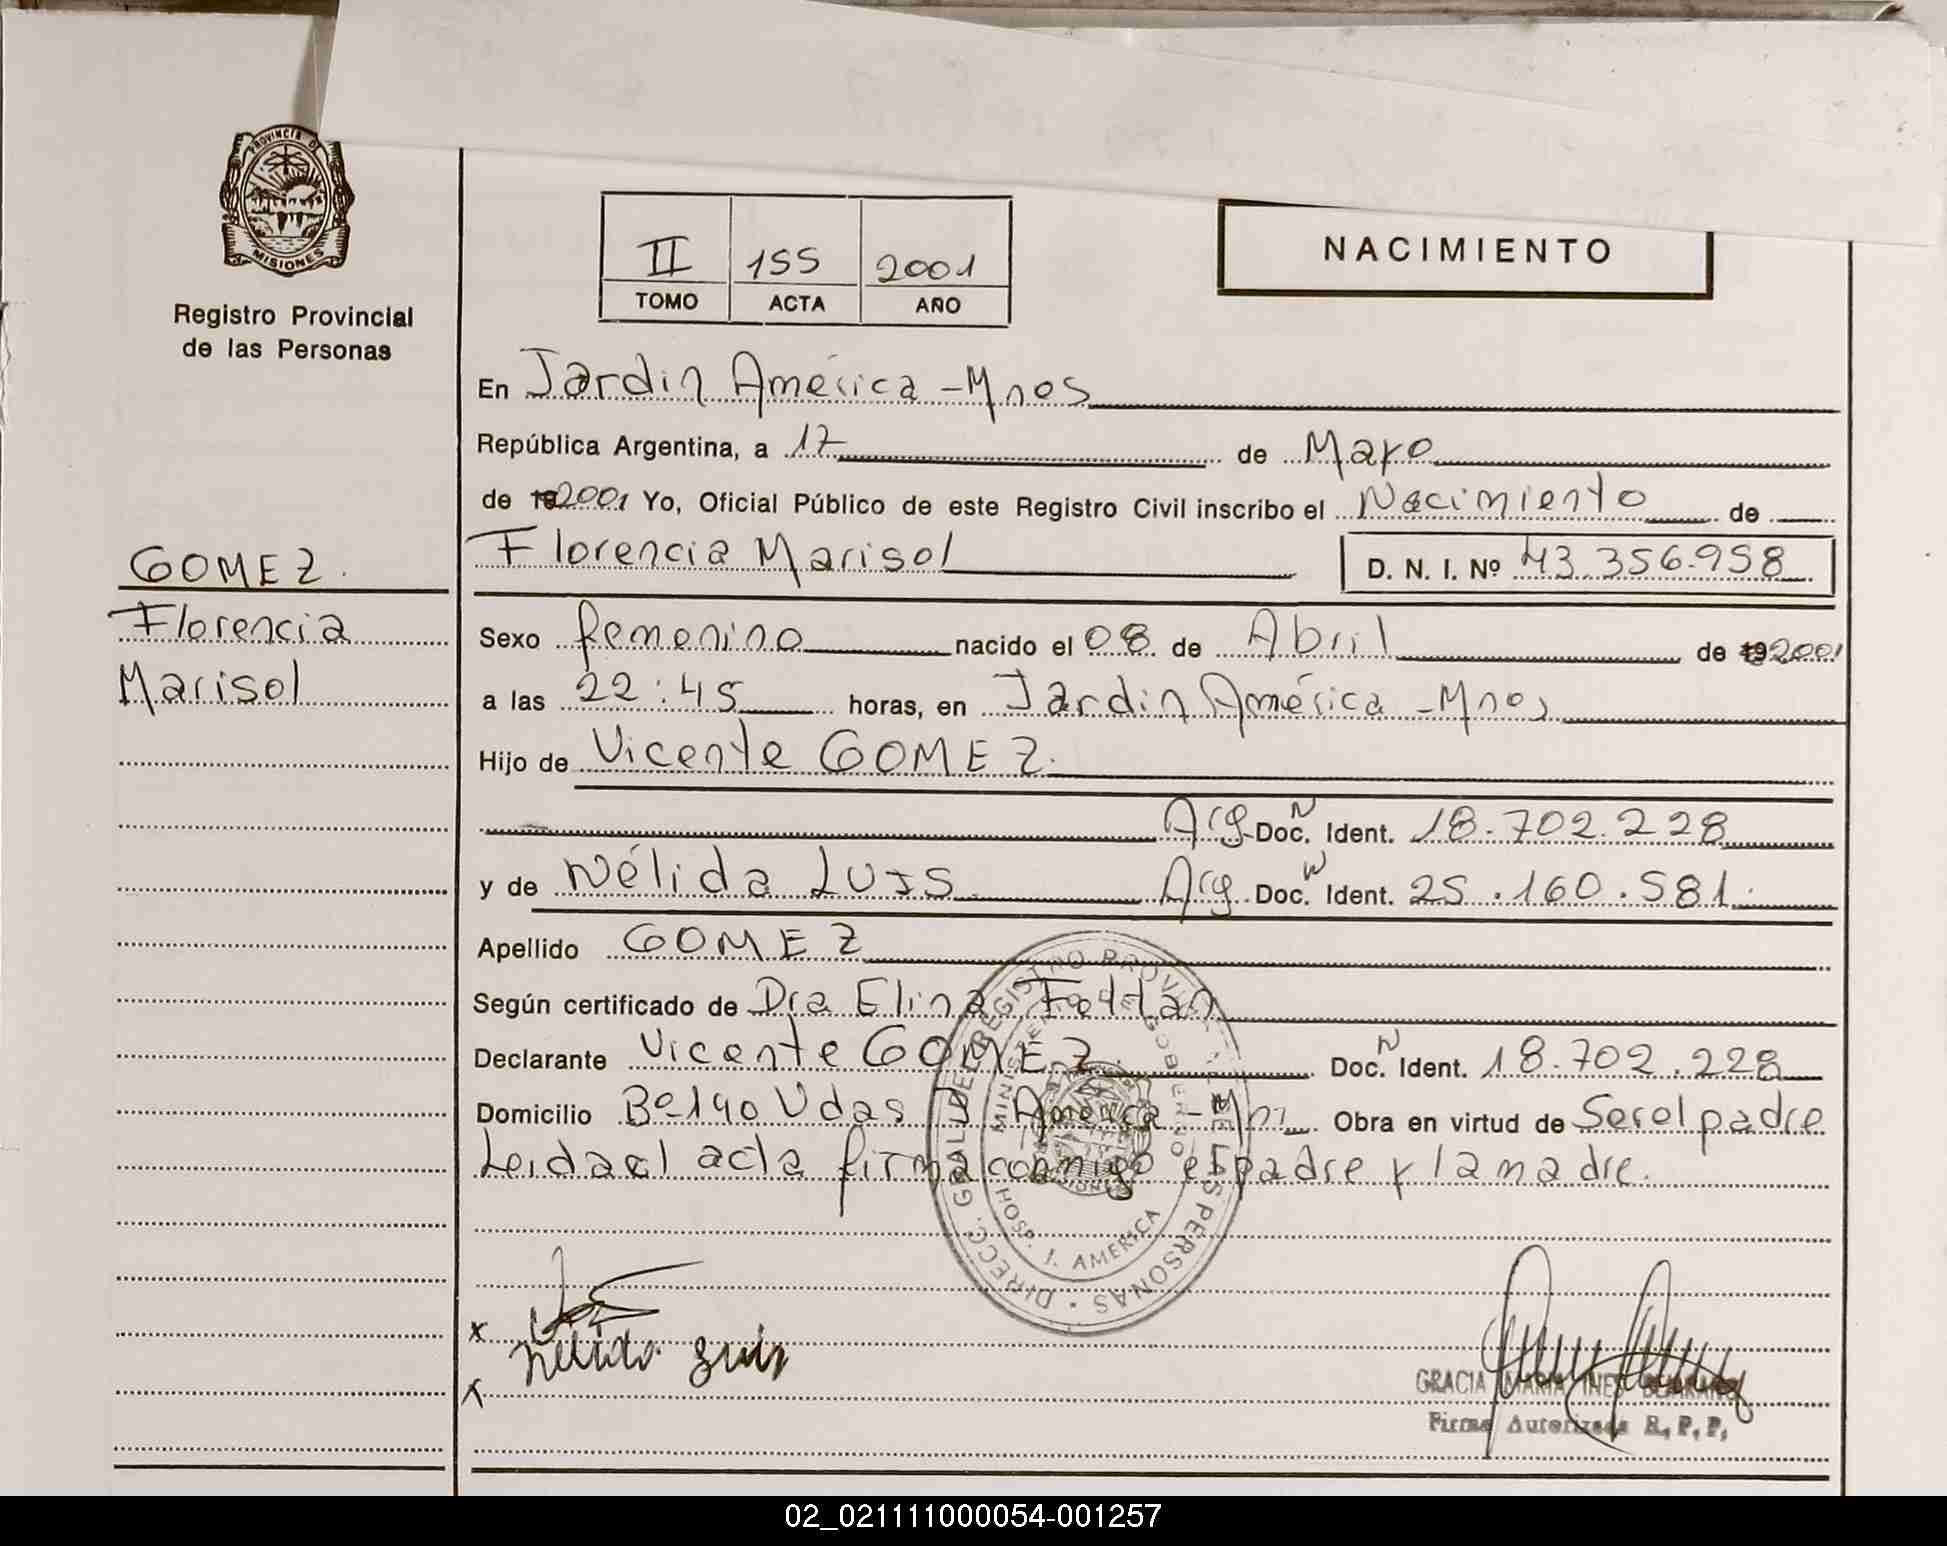 PROVINCIA DE
MISIONES
Registro Provincial
de las Personas
GOMEZ.
Florencia
Marisol
II 155 2001
TOMO ACTA AÑO
NACIMIENTO
En Jardin América - Mnes
República Argentina, a 17 de Mayo
de 192001 Yo, Oficial Público de este Registro Civil inscribo el Nacimiento de
Florencia Marisol D. N. I. Nº 43.356.958
Sexo femenino nacido el 08 de Abril de 192001
a las 22:45 horas, en Jardin América - Mnes
Hijo de Vicente GOMEZ.
Arg. Doc. N Ident. 18.702.228
y de Nélida LUIS Arg. Doc. N Ident. 25.160.581.
Apellido GOMEZ
Según certificado de Dra Elina
Declarante Vicente GOMEZ. Doc. N Ident. 18.702.228
Domicilio Bº 140 Vdas J América - Mni Obra en virtud de Ser el padre
Leida el acta firma conmigo el padre y la madre.
DIRECC. GRAL. DEL REGISTRO PROVINCIAL DE LAS PERSONAS
MINISTERIO DE GOBIERNO
HOSP. J. AMERICA
MISIONES
x
Nelida Luis
x
GRACIA MARIA INES
Firma Autorizada R. P. P.
02_021111000054-001257